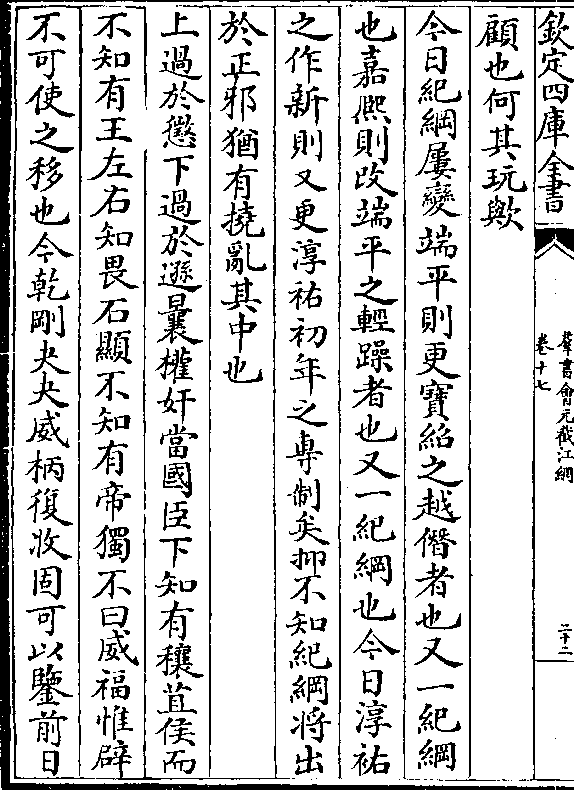 欽定四庫全書
羣書會元截江網
卷十七
二十二
顧也何其玩歟
今日紀綱屢變端平則更寶紹之越僭者也又一紀綱
也嘉熙則改端平之輕躁者也又一紀綱也今日淳祐
之作新則又更淳祐初年之專制矣抑不知紀綱将出
於正邪猶有撓亂其中也
上過於懲下過於遜曩權奸當國臣下知有穰苴侯而
不知有王左右知畏石顯不知有帝獨不曰威福惟辟
不可使之移也今乾剛夬夬威柄復收固可以鑒前日